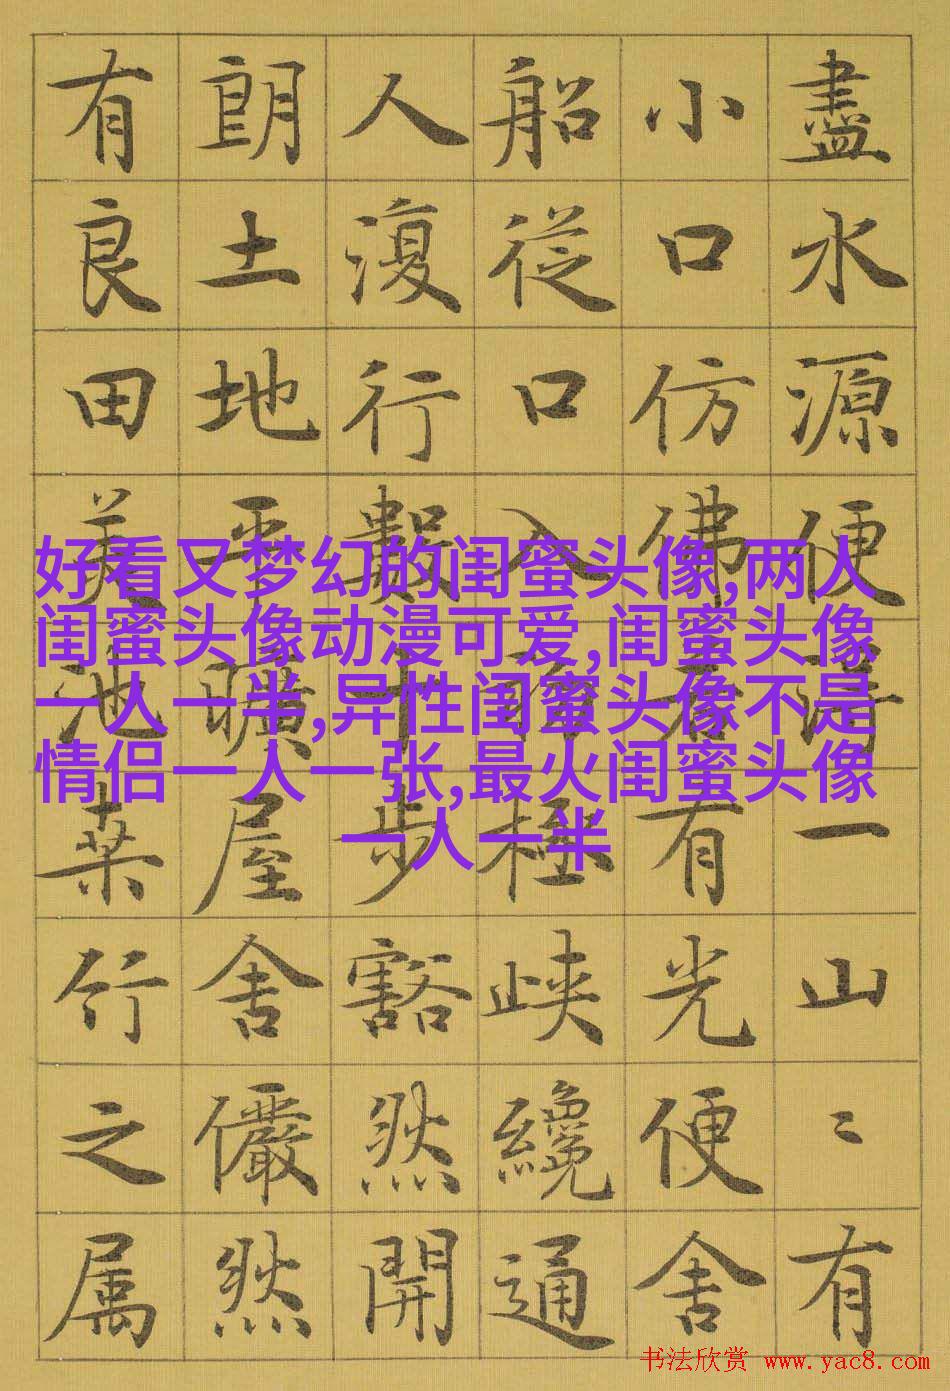 盡水源便得一山〻有
小口仿佛若有光便舍
船從口入初極峽纔通
人復行數十步豁然開
朗土地平曠屋舍儼然
有良田美池桑竹之属
好看又梦幻的闺蜜头像,两人
闺蜜头像动漫可爱,闺蜜头像
一人一半,异性闺蜜头像不是
情侣一人一张,最火闺蜜头像
一人一半
书法欣赏 www.yac8.com